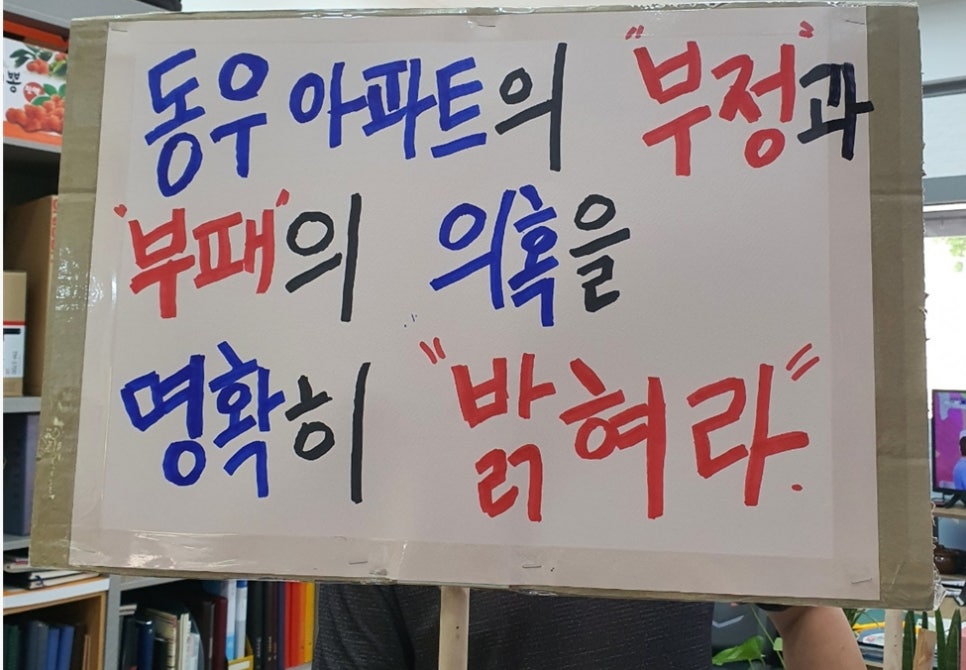 동우 아파트의 "부정"과
"부패"의 의혹을
명확히 "밝혀라."